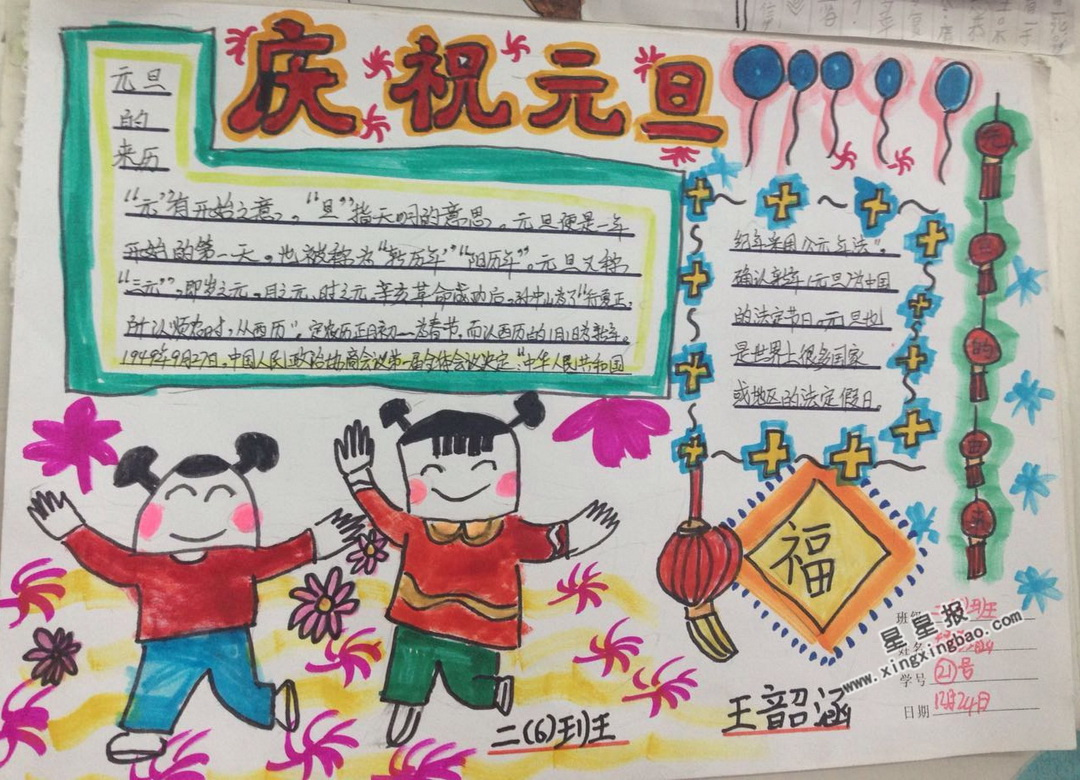 庆祝元旦
元旦
的
来历
"元"有开始之意，"旦"指天明的意思。元旦便是一年
开始的第一天，也被称为"新历年""阳历年"。元旦又称
"三元"，即岁之元、月之元、时之元。辛亥革命成功后，孙中山为了"行夏正，
所以顺农时，从西历"，定农历正月初一为春节，而以西历的1月1日为新年。
1949年9月27日，中国人民政治协商会议第一届全体会议决定："中华人民共和国
纪年采用公元年法"。
确认新年（元旦）为中国
的法定节日，元旦也
是世界上很多国家
或地区的法定假日。
元
旦
的
来
福
二(6)班
王韶涵
班级
姓名
学号 (21)号
日期 12月24日
星星报
www.xingxingbao.com